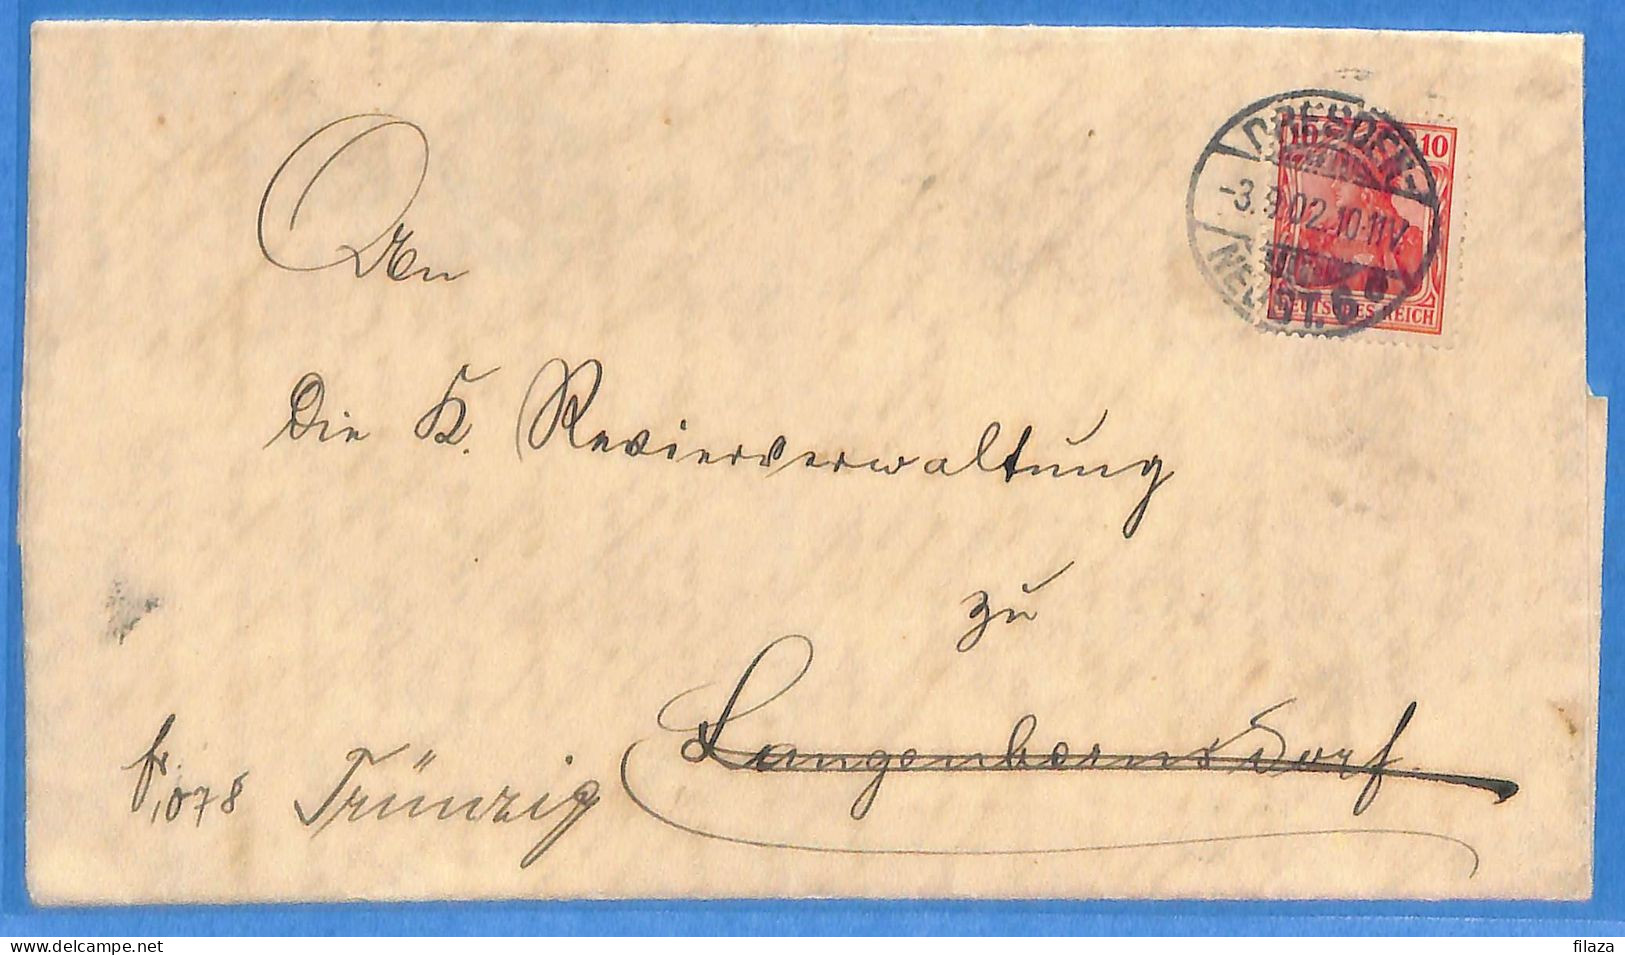 DRESDEN-
-3.9.02.10-11V.
NEUST. 6 c
10 10
DEUTSCHES REICH
An
Die K. Revierverwaltung
zu
Langenbernsdorf
Trünzig
078
delcampe.net
filaza